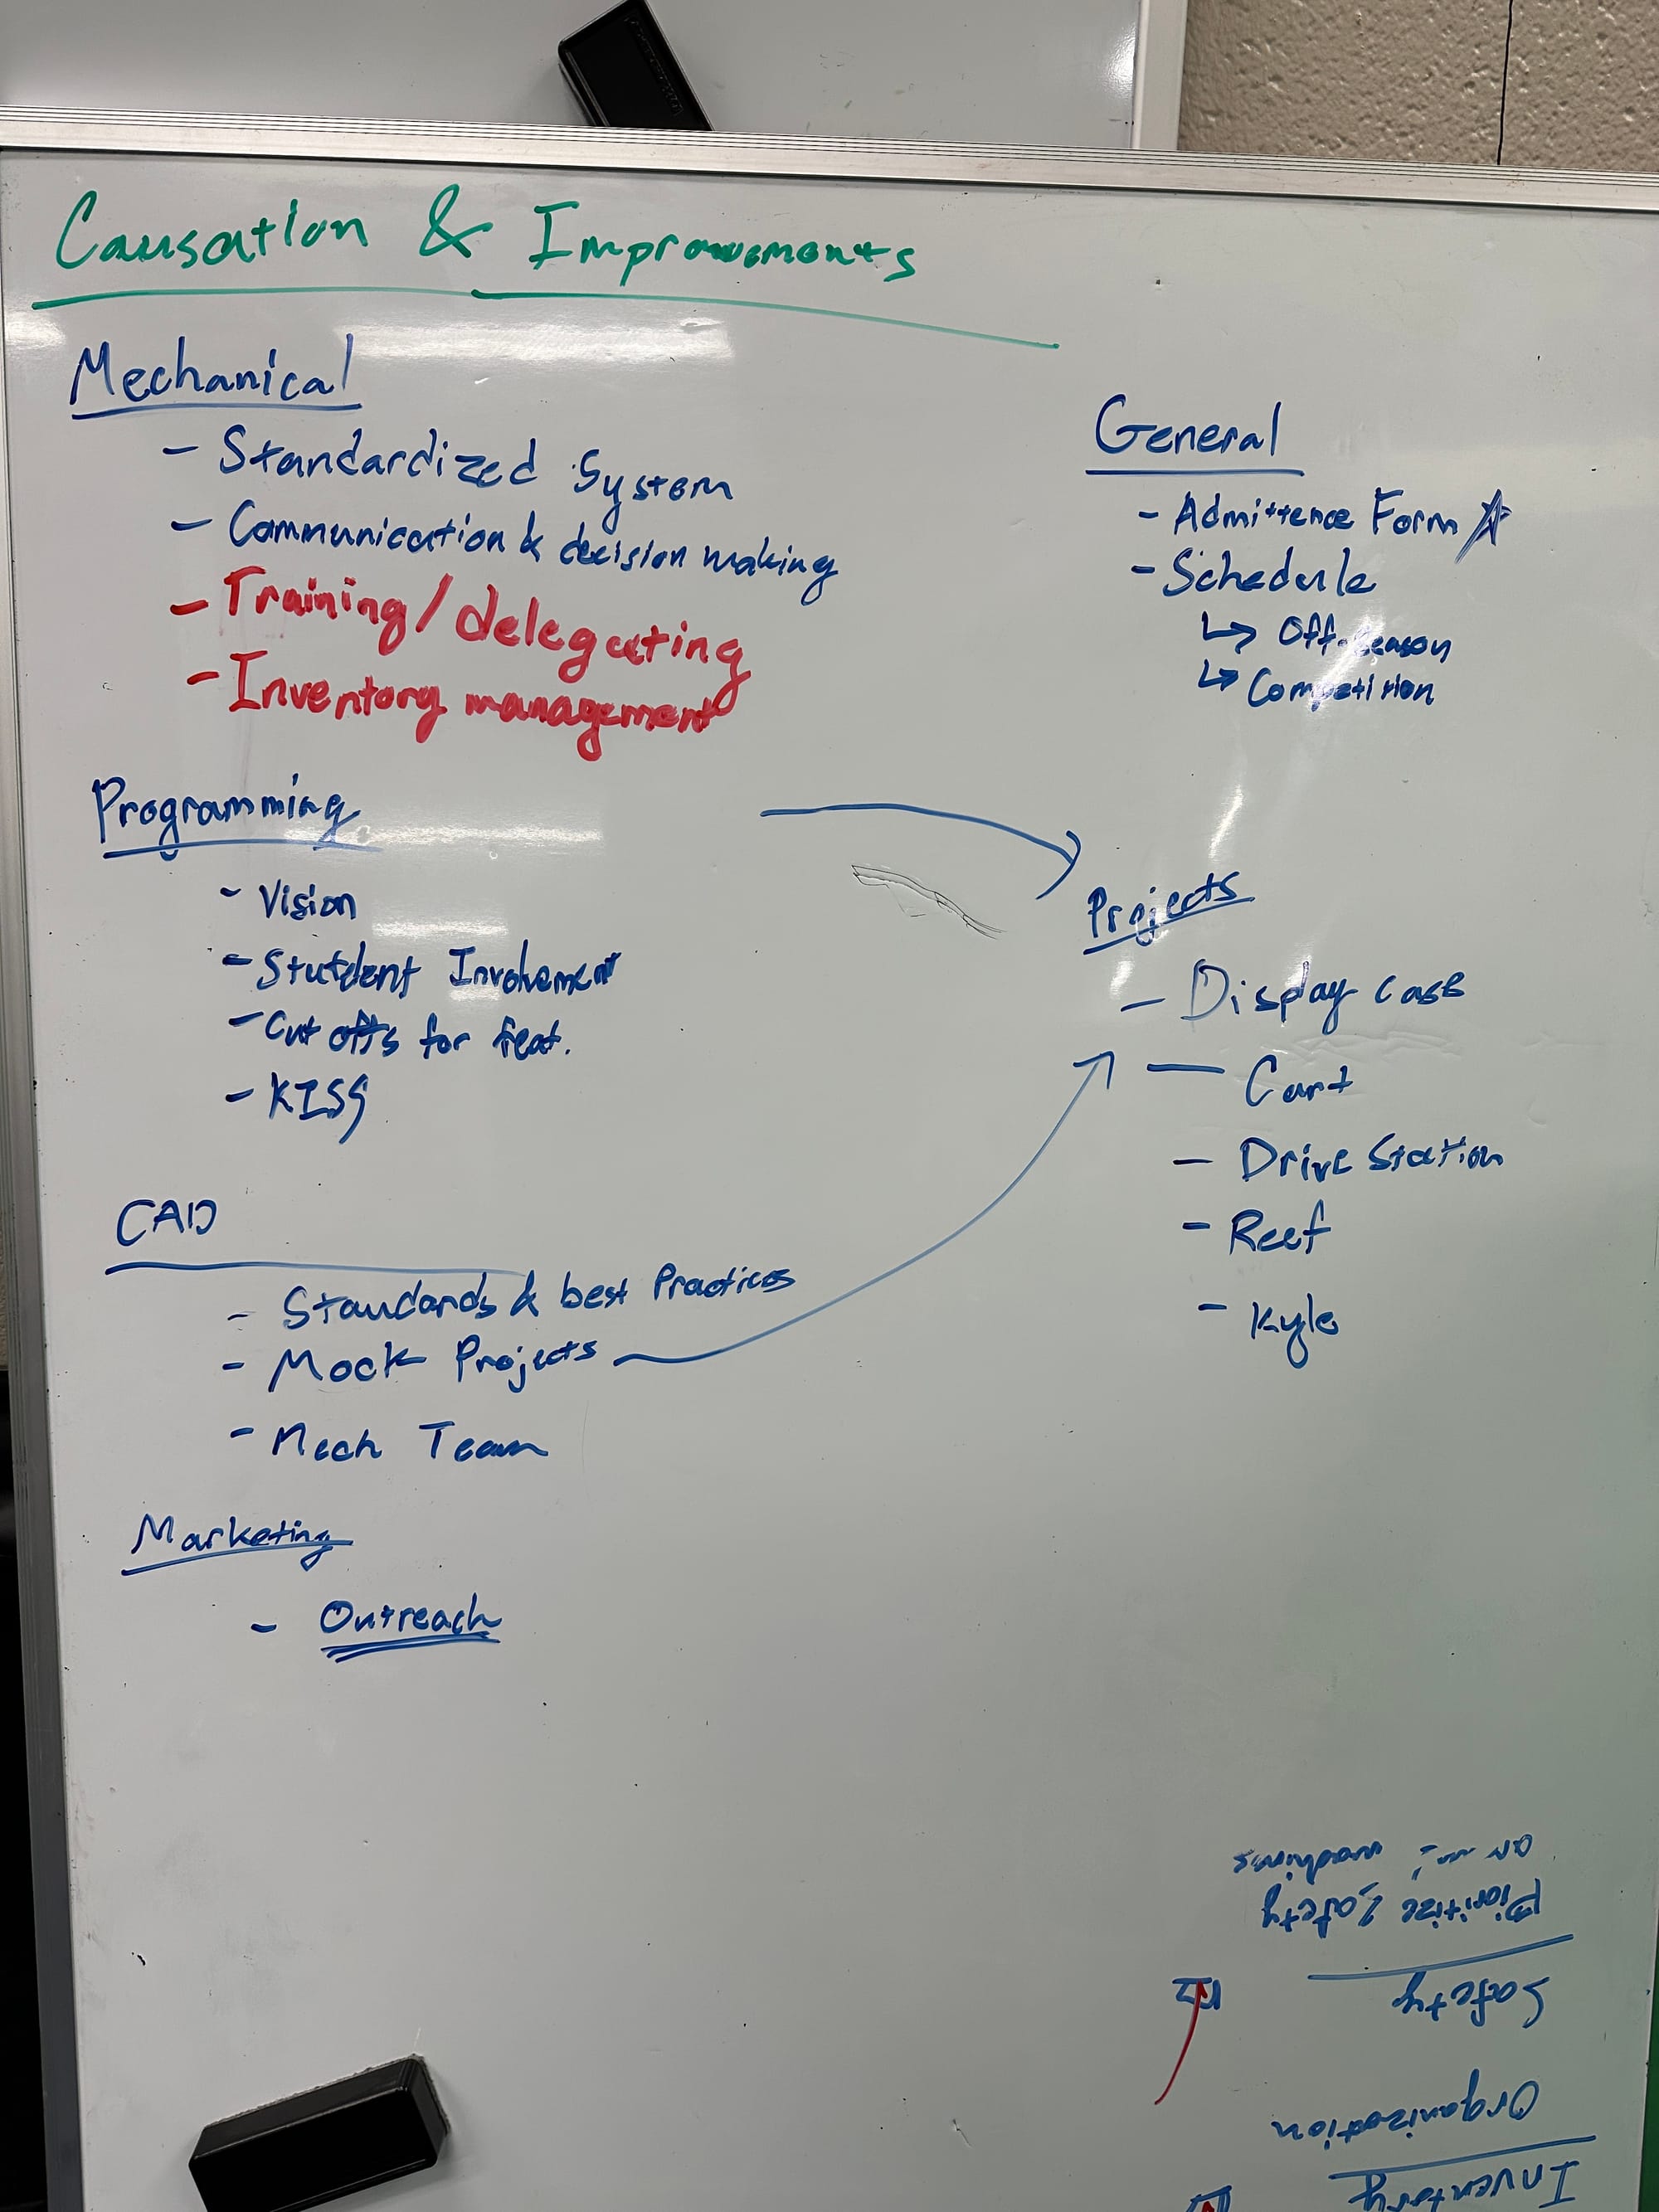 Causation & Improvements
Mechanical
- Standardized System
- Communication & decision making
- Training/delegating
- Inventory management
Programming
- Vision
- Stutdent Involvement
- Cut offs for feat.
- KISS
CAD
- Standards & best Practices
- Mock Projects
- Mech Team
Marketing
- Outreach
General
- Admittence Form ☆
- Schedule
↳ Off-season
↳ Competition
Projects
- Display case
- Cart
- Drive Station
- Reef
- Kyle
Inventory
Organization
Safety
Pioritize Safety
on machines